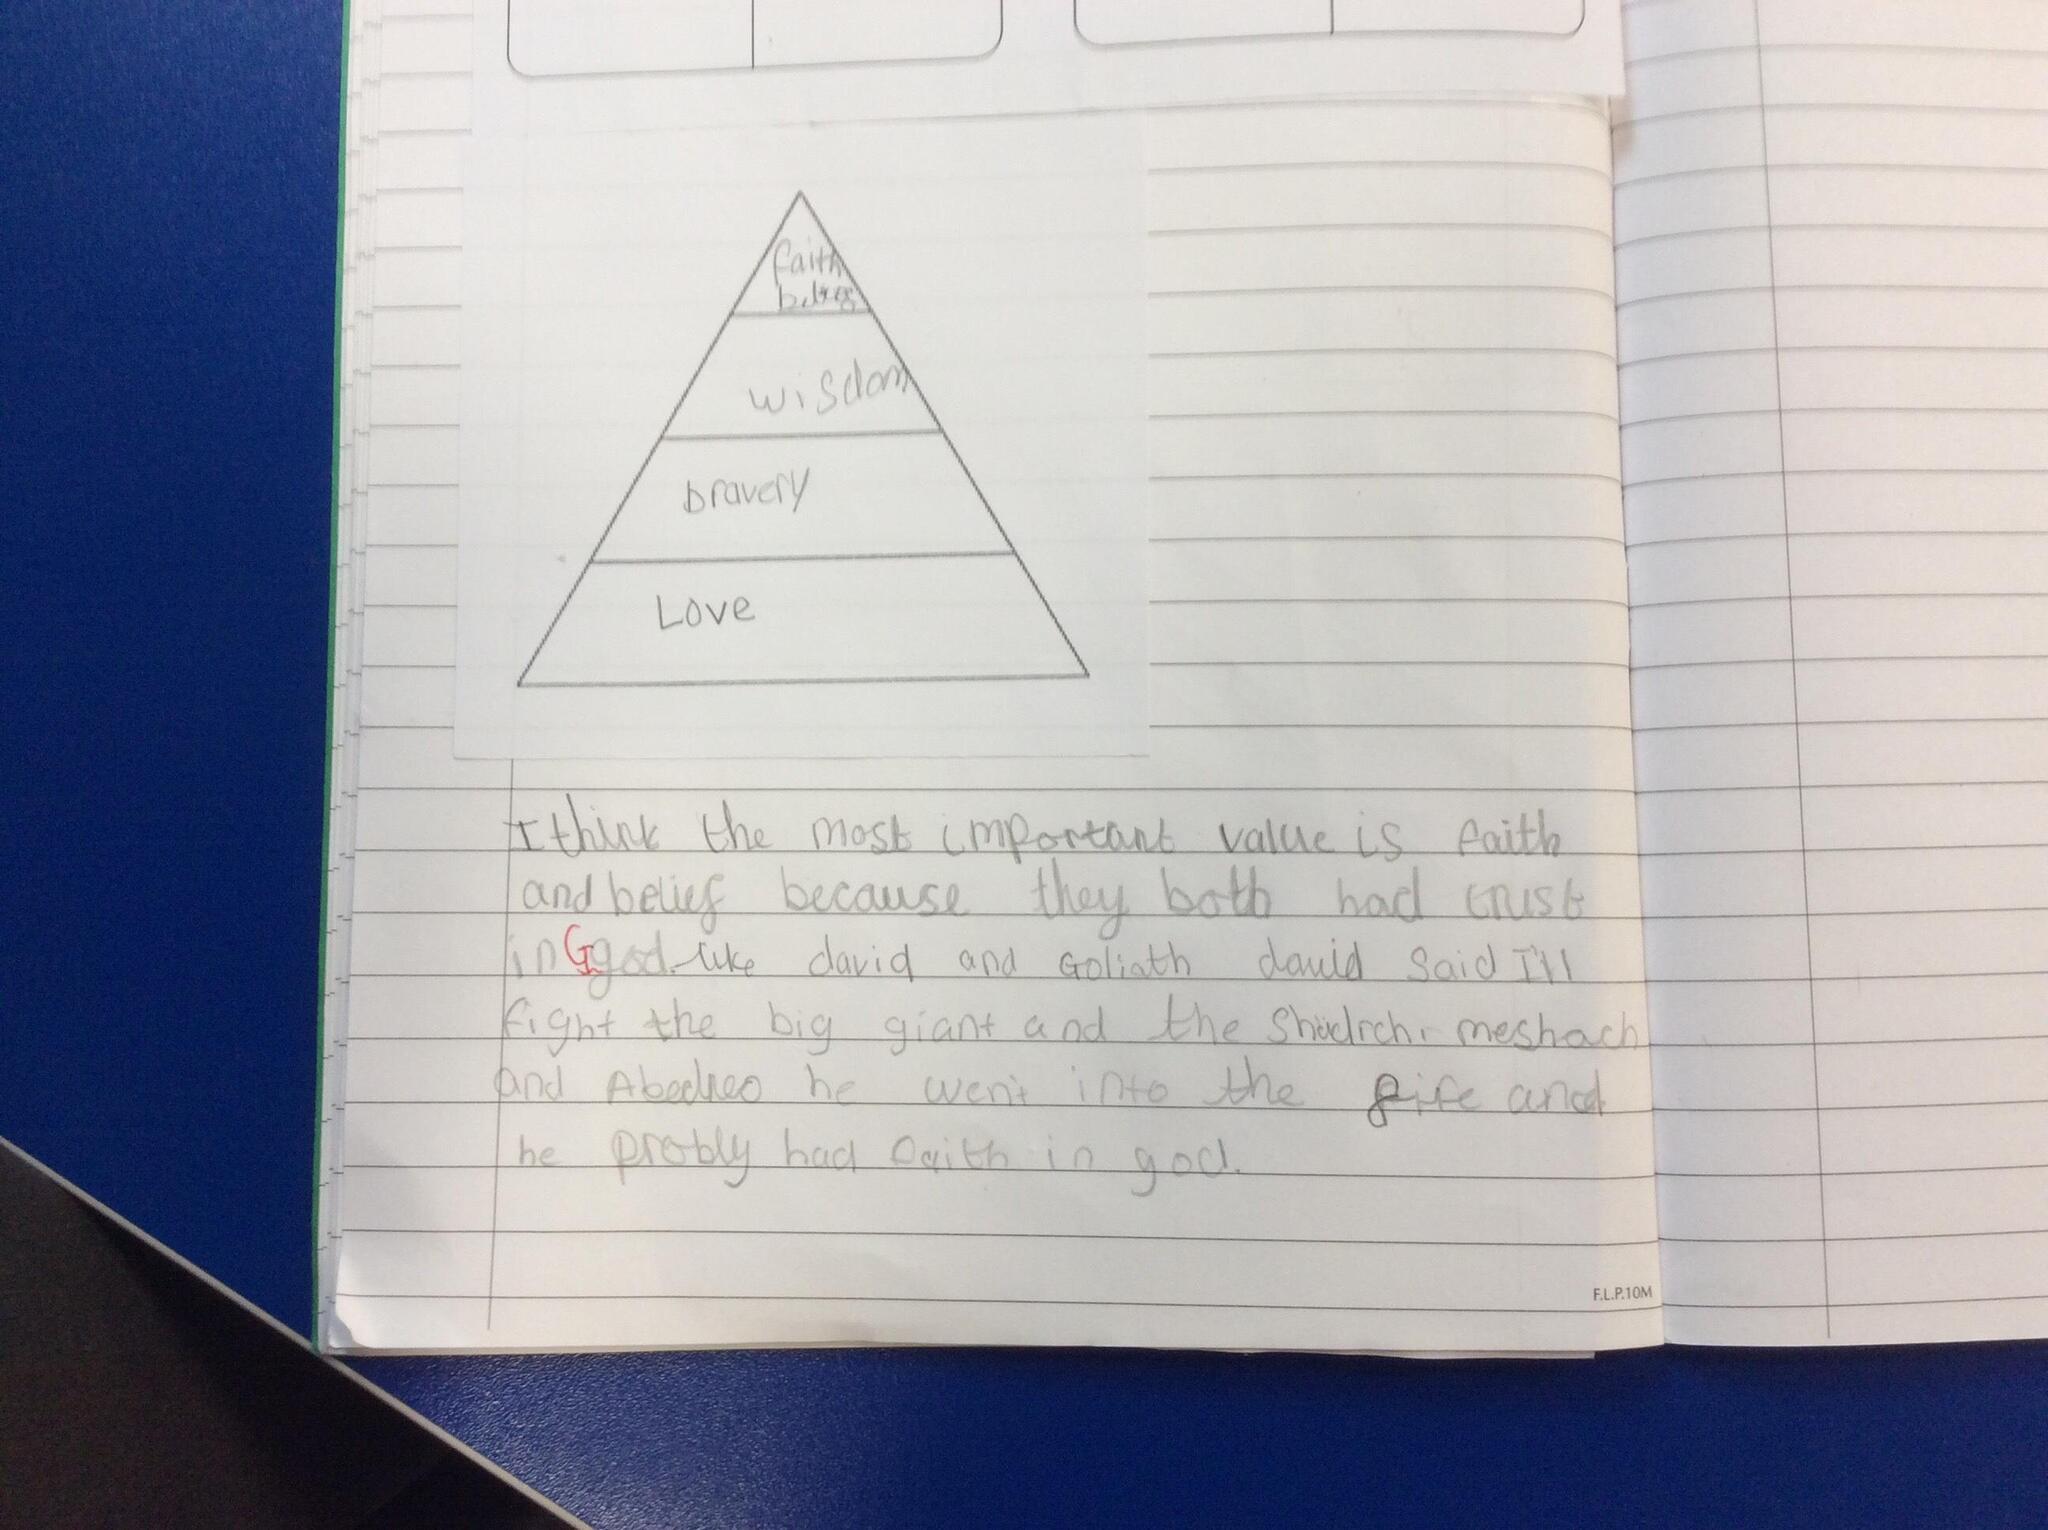 faith
belief
wisdom
bravery
Love
I think the most important value is faith
and belief because they both had trust
in Ggod. like david and Goliath david said I'll
fight the big giant and the Shadrch, meshach
and Abedneo he went into the fife and
he probly had faith in god.
F.L.P.10M